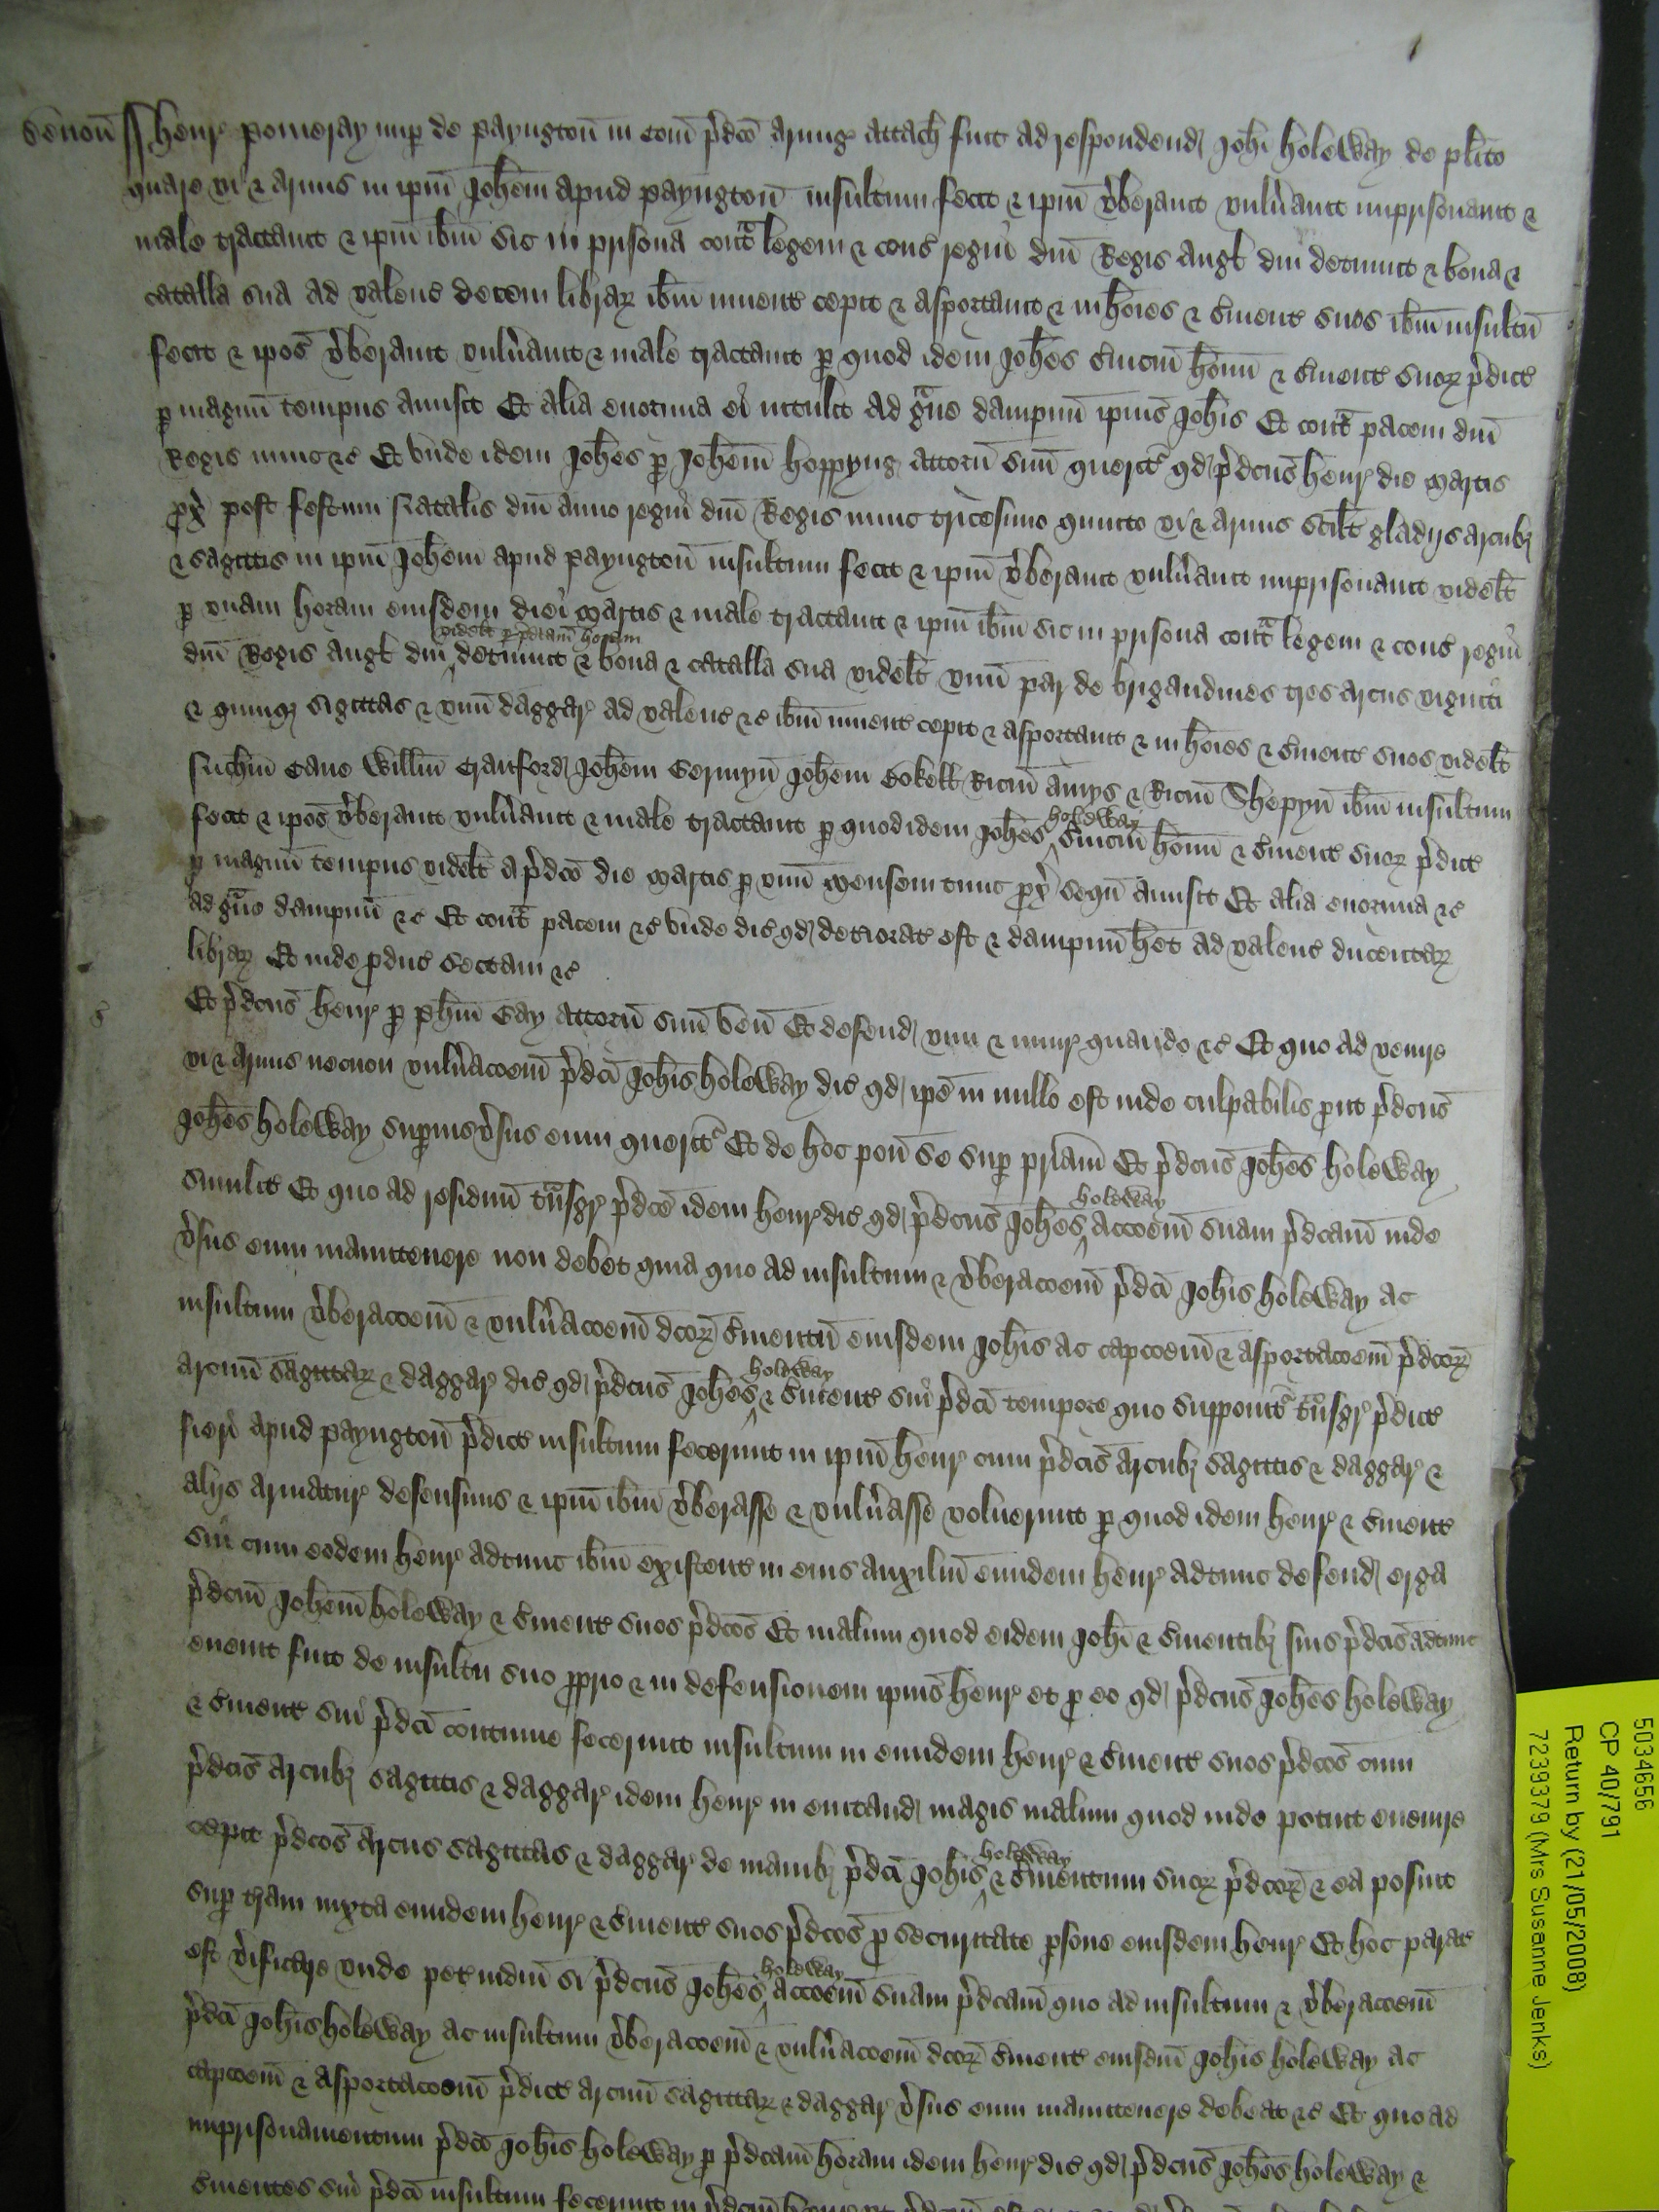 Deuon̄ Henr̃ Pomeray nup̱ de Payngton̄ in Com̄ p̃dc̄o Armig̃ attach̄ fuit ad respondend̃ Joh̄i Holeway de pl̄ito
quare vi & armis in ip̄m Joh̄em apud Payngton̄ insultum fecit & ip̄m v̓berauit vuln̓auit imprisonauit &
male tractauit & ip̄m ib̄m sic in prisona cont̃ᵃ legem & cons̃ regni dn̄i Regis Angl̄ diu detinuit & bona &
catalla sua ad valenc̃ decem libraꝝ ib̄m inuent̃ cepit & asportauit & in ho̅i̅es & s̓uient̃ suos ib̄m insultū
fecit & ip̄os v̓berauit vuln̓auit & male tractauit p̱ quod idem Joh̄es s̓uiciū ho̅i̅m & s̓uient̃ suoꝝ p̃dict̃
p̱ magnū tempus amisit Et alia enormia ei intulit ad gᵃue dampnū ip̄ius Joh̄is Et cont̃ᵃ pacem dn̄i
Regis nunc &c̃ Et vnde idem Joh̄es p̱ Joh̄em Hoppyng attorn̄ suū querit̃ qd̃ p̃dc̄us Henr̃ die Martis
px̄ post festum Natalis dn̄i anno regni dn̄i Regis nunc tricesimo quinto vi & armis scil̄t gladijs arcubꝫ
& sagittis in ip̄m Joh̄em apud Payngton̄ insultum fecit & ip̄m v̓berauit vuln̓auit imprisonauit videl̄t
p̱ vnam horam eiusdem diei Martis & male tractauit & ip̄m ib̄m sic in prisona cont̃ᵃ legem & cons̃ regni
videl̄t p̱ p̃dc̄am horam
dn̄i Regis Angl̄ diu detinuit & bona & catalla sua videl̄t vnū par de brigandines tres arcus viginti
& quinqꝫ sigittas & vnū daggar̃ ad valenc̃ &c̃ ib̄m inuent̃ cepit & asportauit & in ho̅i̅es & s̓uient̃ suos videl̄t
Michm̄ Cane Will̄m Craiford Joh̄em Germyn̄ Joh̄em Cokell̄ Ric̄m Amys & Ric̄m Shepyn̄ ib̄m insultum
fecit & ip̄os v̓berauit vuln̓auit & male tractauit p̱ quod idem Joh̄es Holeway s̓uiciū ho̅i̅m & s̓uient̃ suoꝝ p̃dict̃
p̱ magnū tempus videl̄t a p̃dc̄o die Martis p̱ vnū Mensem tunc px̄ seqū amisit Et alia enormia &c̃
ad gᵃue dampnū &c̃ Et cont̃ᵃ pacem &c̃ vnde dic̃ qd̃ deteriorat̃ est & dampnū h̄et ad valenc̃ ducentaꝝ
libraꝝ Et inde p̱duc̃ sectam &c̃
Et p̃dc̄us Henr̃ p̱ Ph̄m Cay attorn̄ suū ven̄ Et defend̃ vim & iniur̃ quando &c̃ Et quo ad venire
vi & armis necnon vuln̓ac̄oem̄ p̃dc̄i Joh̄is Holeway dic̃ qd̃ ip̄e in nullo est inde culpabilis put p̃dc̄us
Joh̄es Holeway sup̱ius v̓sus eum querit̃ Et de hoc pon̄ se sup̱ pr̄iam Et p̃dc̄us Joh̄es Holeway
similit̃ Et quo ad residuū tᵃnsgr̃ p̃dc̄e idem Henr̃ dic̃ qd̃ p̃dc̄us Joh̄es Holeway acc̄oem̄ suam p̃dc̄am inde
v̓sus eum manutenere non debet quia quo ad insultum & v̓berac̄oem̄ p̃dc̄i Joh̄is Holeway ac
insultum v̓berac̄oem̄ & vuln̓ac̄oem̄ dc̄oꝝ s̓uientū eiusdem Joh̄is ac capc̄oem̄ & asportac̄oem̄ p̃dc̄oꝝ
arcuū sagittaꝝ & daggar̃ dic̃ qd̃ p̃dc̄us Joh̄es Holeway & s̓uient̃ sui p̃dc̄i tempore quo supponit̃ tᵃnsgr̃ p̃dict̃
fieri apud Payngton̄ p̃dict̃ insultum fecerunt in ip̄m Henr̃ cum p̃dc̄is arcubꝫ sagittis & daggar̃ &
alijs armatur̃ defensiuis & ip̄m ib̄m v̓berasse & vuln̓asse voluerunt p̱ quod idem Henr̃ & s̓uient̃
sui cum eodem Henr̃ adtunc ib̄m existent̃ in eius auxiliū eundem Henr̃ adtunc defend̃ erga
p̃dc̄m̄ Joh̄em Holeway & s̓uient̃ suos p̃dc̄os Et malum quod eidem Joh̄i & s̓uientibꝫ suis p̃dc̄is adtunc
euenit fuit de insultu suo pprio & in defensionem ip̄ius Henr̃ et p̱ eo qd̃ p̃dc̄us Joh̄es Holeway
& s̓uient̃ sui p̃dc̄i continue fecerunt insultum in eundem Henr̃ & s̓uient̃ suos p̃dc̄os cum
p̃dc̄is arcubꝫ sagittis & daggar̃ idem Henr̃ in euitand̃ magis malum quod inde potuit euenire
cepit p̃dc̄os arcus sagittas & daggar̃ de manibꝫ p̃dc̄i Joh̄is Holeway & s̓uientium suoꝝ p̃dc̄oꝝ & ea posuit
sup̱ t̓ram iuxta eundem Henr̃ & s̓uient̃ suos p̃dc̄os p securitate p̱sone eiusdem Henr̃ Et hoc parat̃
est v̓ificare vnde pet̃ iudm̄ si p̃dc̄us Joh̄es Holeway acc̄oem̄ suam p̃dc̄am quo ad insultum & v̓berac̄oem̄
p̃dc̄i Joh̄is Holeway ac insultum v̓berac̄oem̄ & vuln̓ac̄oem̄ dc̄oꝝ s̓uient̃ eiusdm̄ Joh̄is Holeway ac
capc̄oem̄ & asportac̄oem̄ p̃dict̃ arcuū sagittaꝝ & daggar̃ v̓sus eum manutenere debeat &c̃ Et quo ad
imprisonamentum p̃dc̄i Joh̄is Holeway p̱ p̃dc̄am horam idem Henr̃ dic̃ qd̃ p̃dc̄us Joh̄es Holeway &
s̓uientes sui p̃dc̄i insultum fecerunt in p̃dc̄m̄
5034656
CP 40/791
Return by (21/05/2008)
7239379 (Mrs Susanne Jenks)